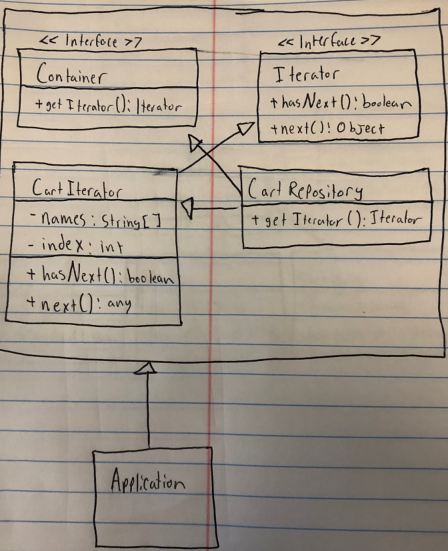 << Interface >>
Container
+ getIterator(): Iterator
<< Interface >>
Iterator
+ hasNext(): boolean
+ next(): Object
CartIterator
- names: String[]
- index: int
+ hasNext(): boolean
+ next(): any
CartRepository
+ getIterator(): Iterator
Application